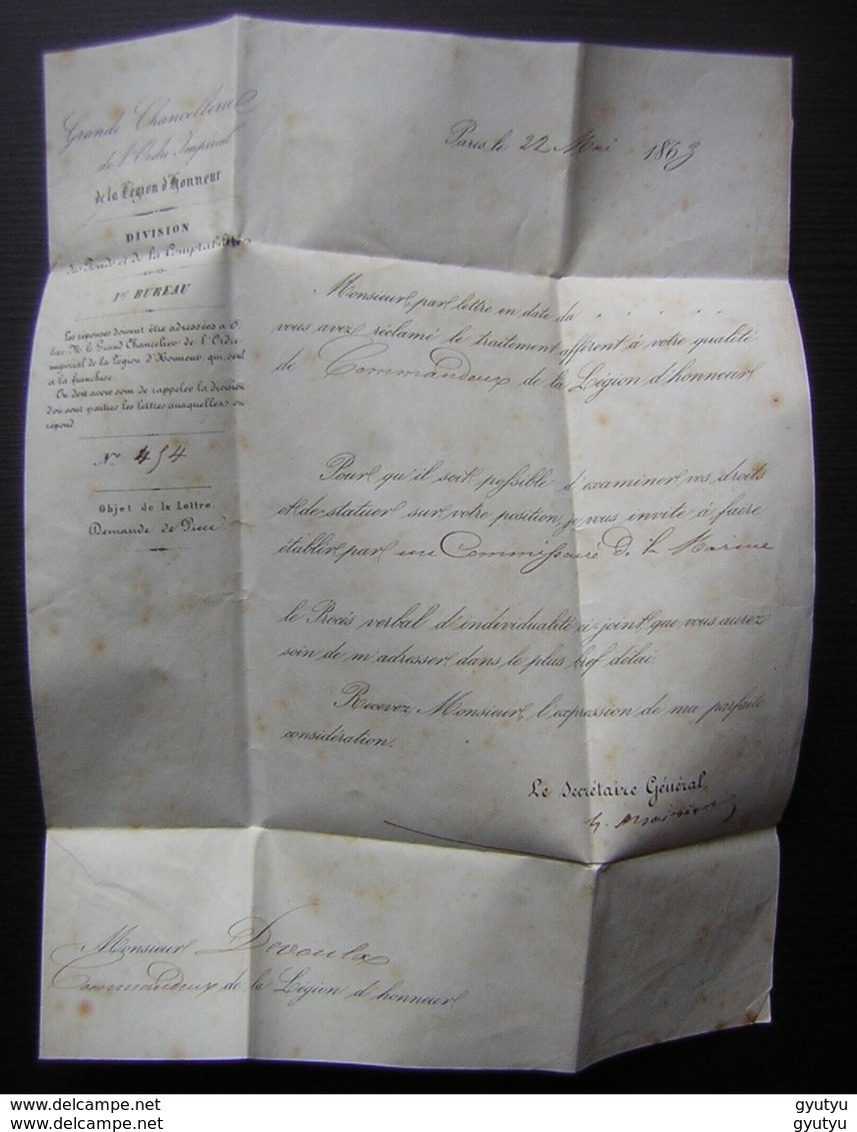 Grande Chancellerie
de l'Ordre Impérial
de la Légion d'Honneur
DIVISION
des Fonds et de la Comptabilité
1er BUREAU
Les réponses doivent être adressées à S.
Exc. M. le Grand Chancelier de l'Ordre
impérial de la Légion d'Honneur, qui seul
a la franchise.
On doit avoir soin de rappeler la division
d'où sont parties les lettres auxquelles on
répond
N° 454
Objet de la Lettre.
Demande de Pièce
Paris, le 22 Mai 1863
Monsieur, par lettre en date du . . . . . .
vous avez réclamé le traitement afférent à votre qualité
de Commandeur de la Légion d'honneur
Pour qu'il soit possible d'examiner vos droits
et de statuer sur votre position, je vous invite à faire
établir par un Commissaire de la Marine
le Procès verbal d'individualité ci-joint, que vous aurez
soin de m'adresser dans le plus bref délai.
Recevez Monsieur, l'expression de ma parfaite
considération.
Le Secrétaire Général,
Monsieur Devoulx
Commandeur de la Légion d'honneur
delcampe.net
gyutyu
delcampe.net
gyutyu